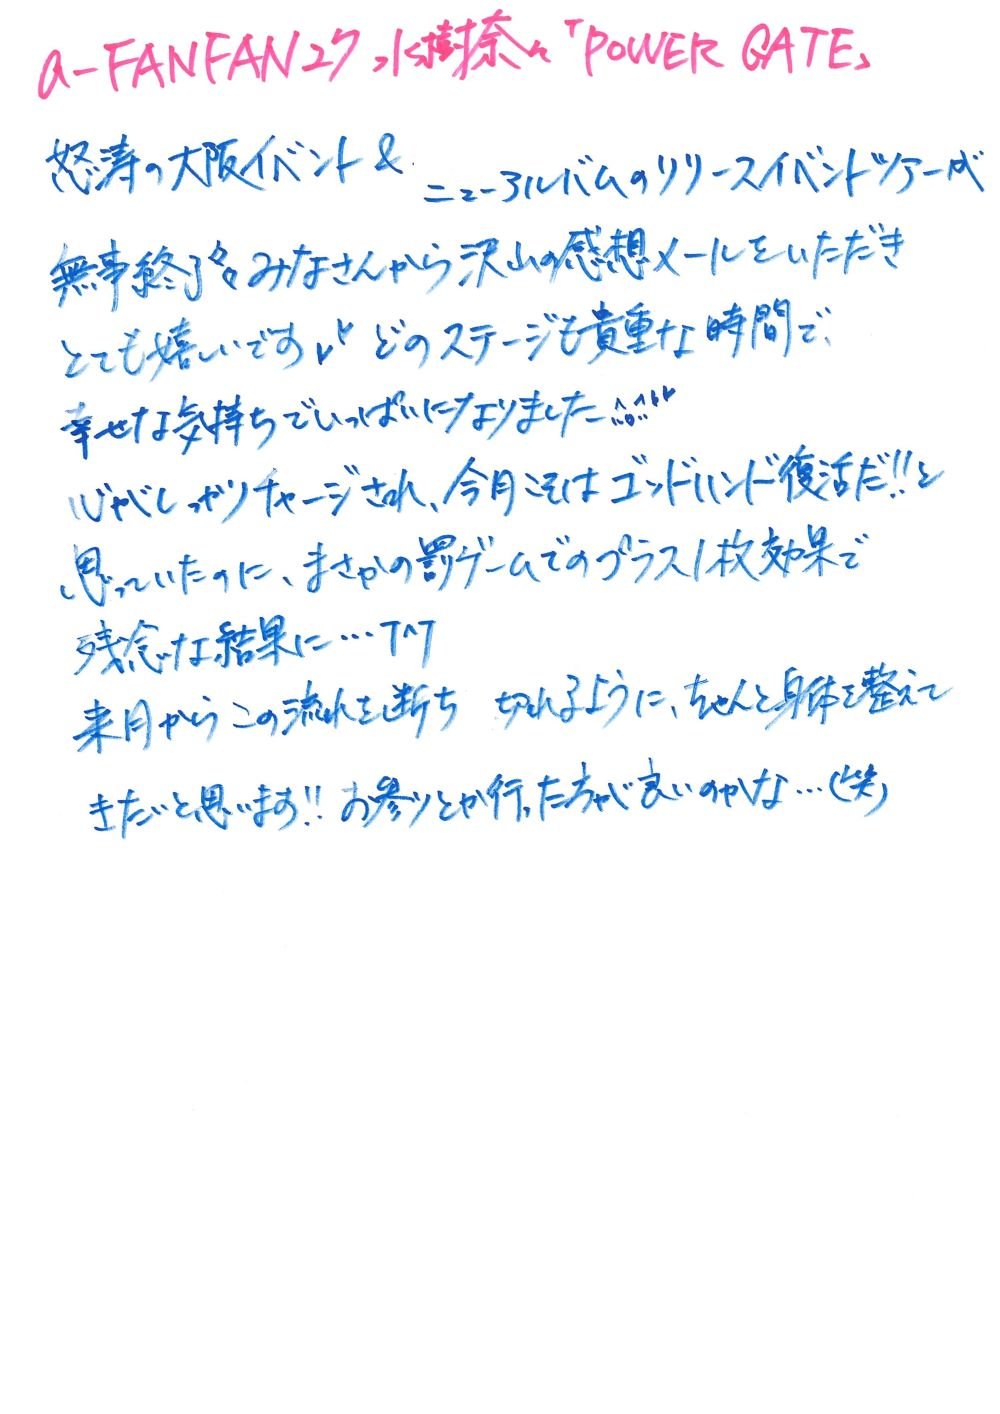 a-FANFAN27 水樹奈々「POWER GATE」
怒涛の大阪イベント& ニューアルバムのリリースイベントツアーが
無事終了 みなさんから沢山の感想メールをいただき
とても嬉しいです♥ どのステージも貴重な時間で、
幸せな気持ちでいっぱいになりました
心がしっかりチャージされ、今月こそはゴッドハンド復活だ!!と
思っていたのに、まさかの罰ゲームでのプラス1枚効果で
残念な結果に…T^T
来月からこの流れを断ち 切れるように、ちゃんと身体を整えて
きたいと思います!! お参りとか行った方が良いのかな…(笑)